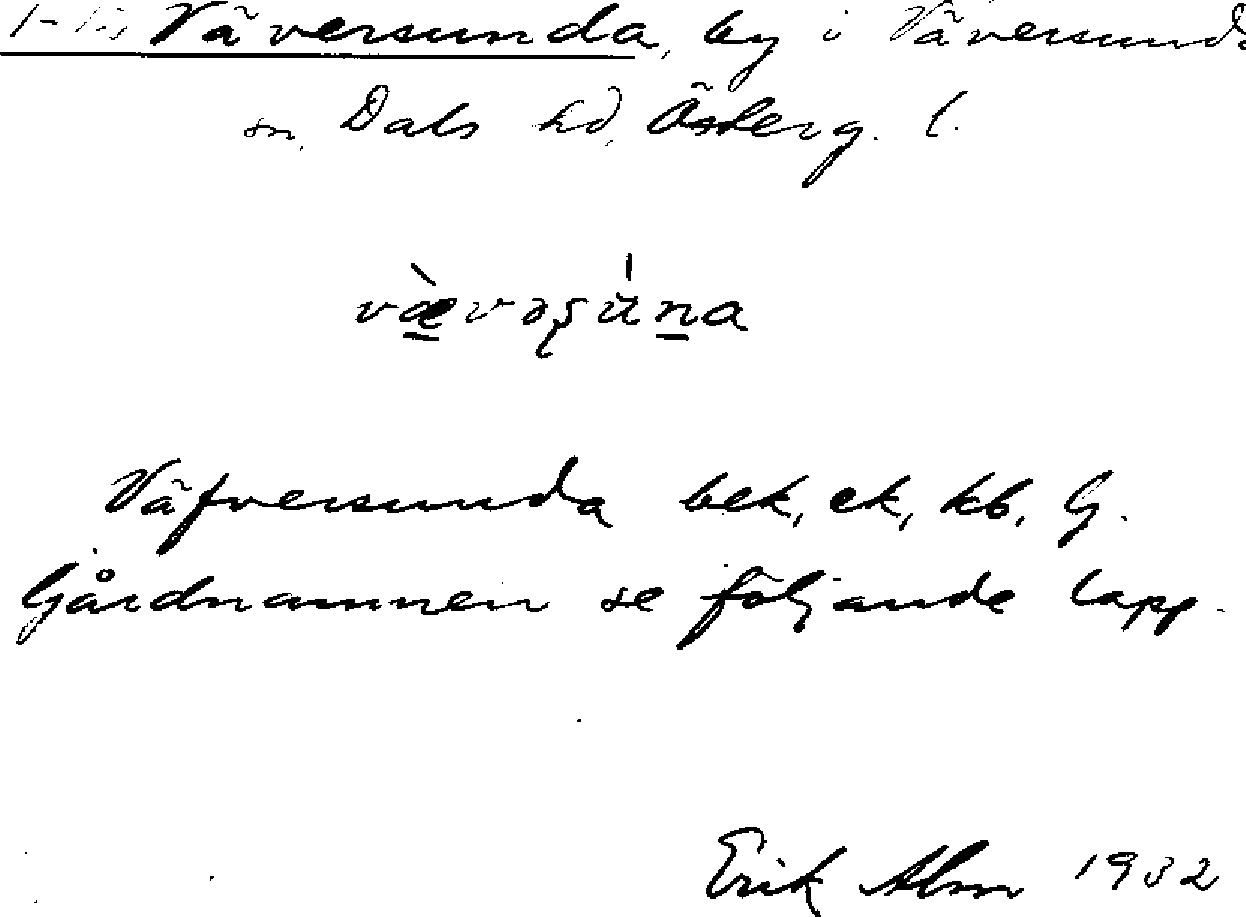 1-13 Väversunda, by i Väversunda
sn, Dals hd, Österg. l.
væ̀vəʂúna
Väfversunda bek, ek, kb, G.
Gårdnamnen se följande lapp.
Erik Alm 1932